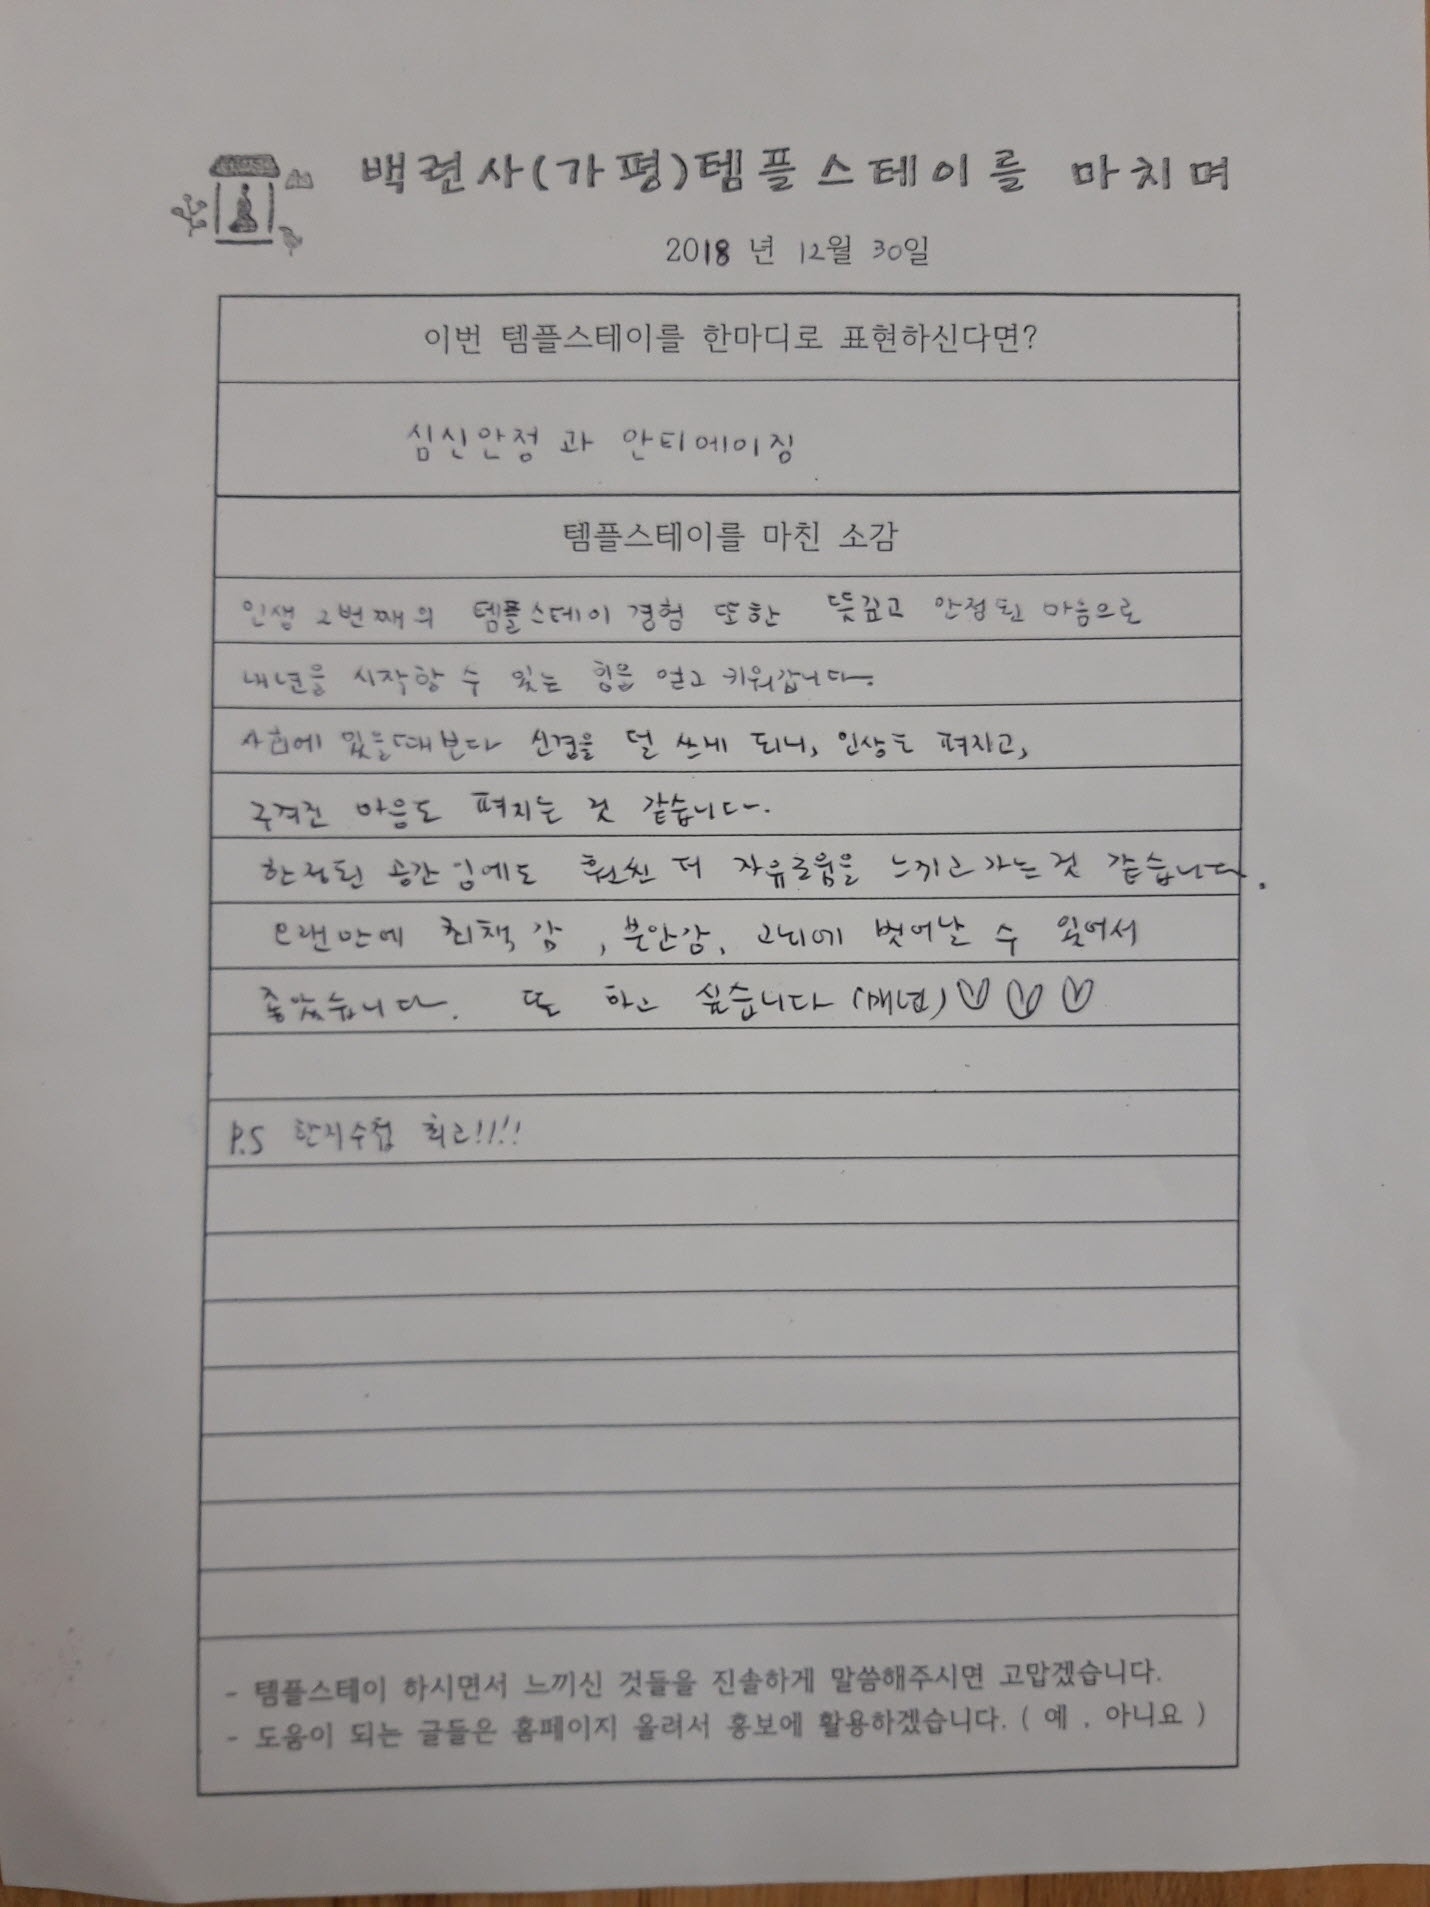 백련사(가평)템플스테이를 마치며
2018 년 12월 30일
이번 템플스테이를 한마디로 표현하신다면?
심신안정 과 안티에이징
템플스테이를 마친 소감
인생 2번째의 템플스테이 경험 또한 뜻깊고 안정된 마음으로
내년을 시작할 수 있는 힘을 얻고 키워갑니다.
사회에 있을때보다 신경을 덜 쓰게 되니, 인상도 펴지고,
구겨진 마음도 펴지는 것 같습니다.
한정된 공간임에도 훨씬 더 자유로움을 느끼고 가는 것 같습니다.
오랜만에 죄책감, 불안감, 고뇌에 벗어날 수 있어서
좋았습니다. 또 하고 싶습니다 (매년) ♡ ♡ ♡
P.S 한지수첩 최고!!!!
- 템플스테이 하시면서 느끼신 것들을 진솔하게 말씀해주시면 고맙겠습니다.
- 도움이 되는 글들은 홈페이지 올려서 홍보에 활용하겠습니다. ( 예 , 아니요 )